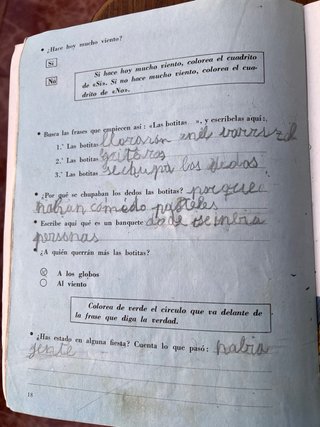 • ¿Hace hoy mucho viento?
Sí
No
Si hace hoy mucho viento, colorea el cuadrito
de «Sí». Si no hace mucho viento, colorea el cua-
drito de «No».
• Busca las frases que empiecen así: «Las botitas », y escríbelas aquí:
1.ª Las botitas lloraron en el
2.ª Las botitas
3.ª Las botitas se chupa los dedos
• ¿Por qué se chupaban los dedos las botitas? porque
habian comédo pasteles
• Escribe aquí qué es un banquete donde
personas
• ¿A quién querrán más las botitas?
A los globos
Al viento
Colorea de verde el círculo que va delante de
la frase que diga la verdad.
• ¿Has estado en alguna fiesta? Cuenta lo que pasó: habia
jente
18